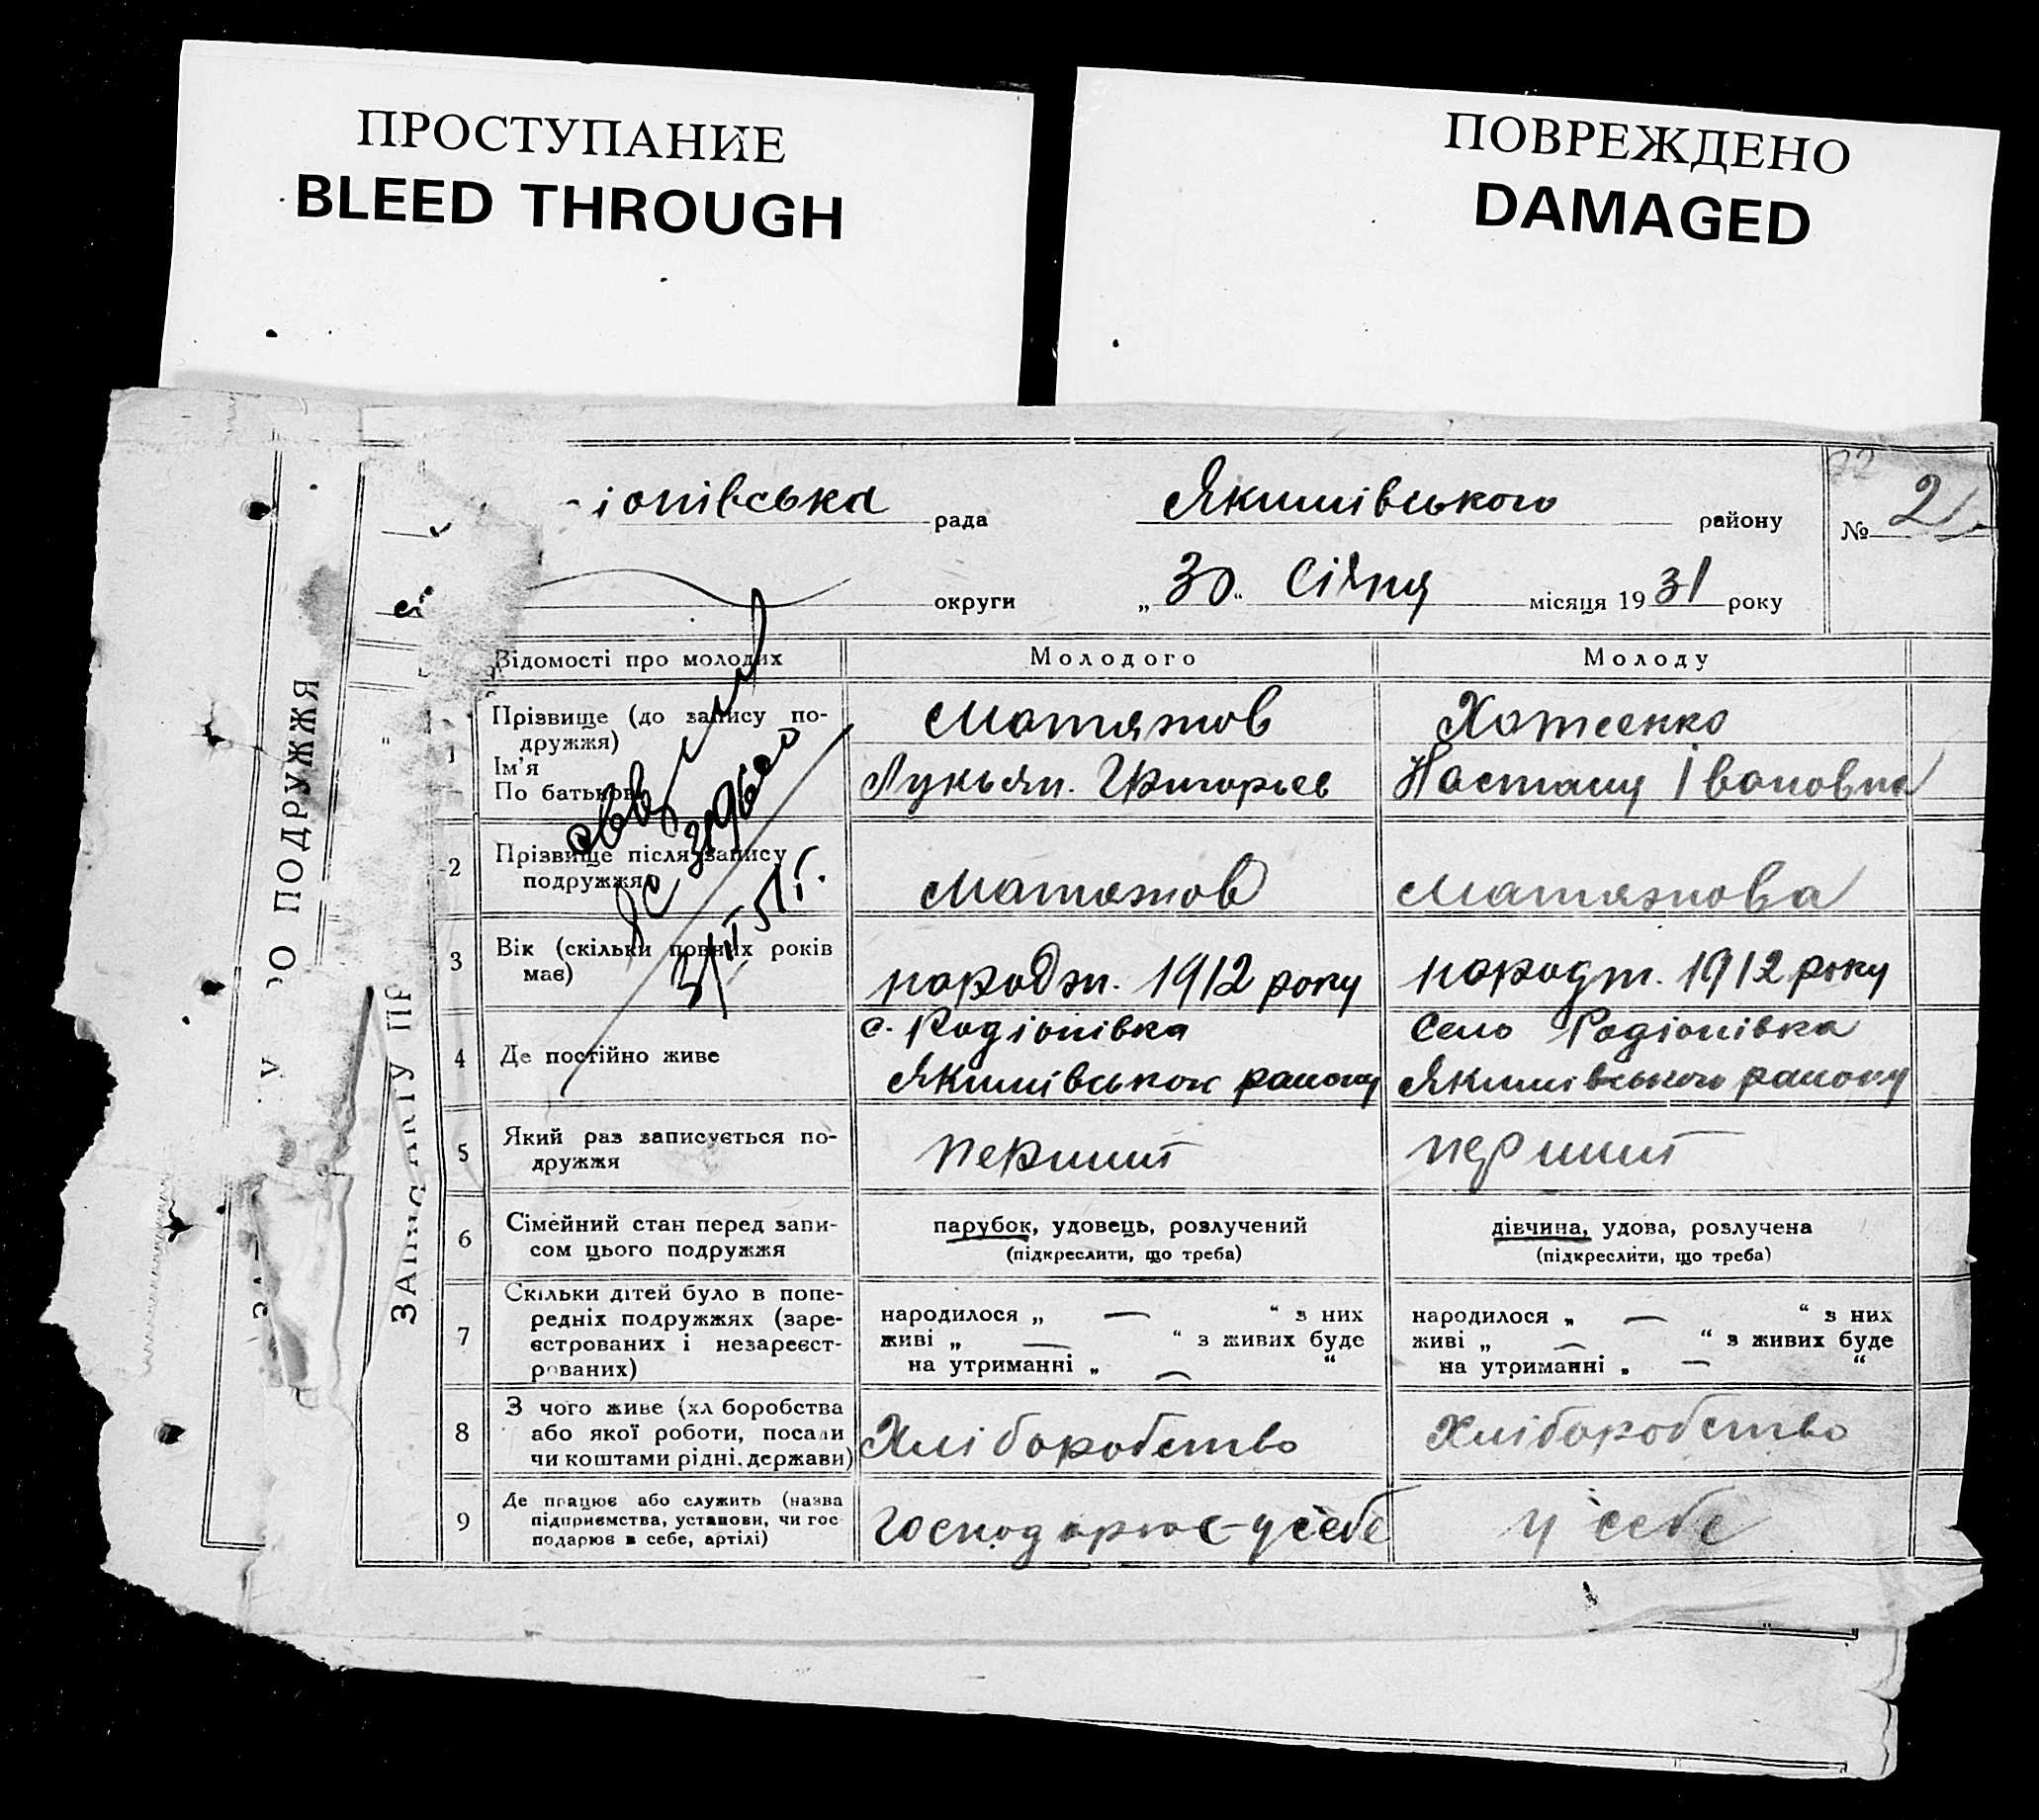 ПРОСТУПАНИЕ
BLEED THROUGH
ПОВРЕЖДЕНО
DAMAGED
іонівська рада Якимівського району № 2
округи „30“ Січня місяця 1931 року
Відомості про молодих Молодого Молоду
1 Прізвище (до запису по-
дружжя) Матяжов Хотеенко
Ім'я
По батькові Лукьян. Григорьев Настащ Івановна
2 Прізвище після запису
подружжя Матяжов Матяжова
3 Вік (скільки повних років
має) народж. 1912 року народж. 1912 року
4 Де постійно живе с. Родіонівка Село Родіонівка
Якимівського району Якимівського району
5 Який раз записується по-
дружжя перший перший
6 Сімейний стан перед запи-
сом цього подружжя
парубок, удовець, розлучений
(підкреслити, що треба)
дівчина, удова, розлучена
(підкреслити, що треба)
7 Скільки дітей було в попе-
редніх подружжях (заре-
єстрованих і незареєст-
рованих)
народилося „ — “ з них
живі „ — “ з живих буде
на утриманні „ — “
народилося „ — “ з них
живі „ — “ з живих буде
на утриманні „ — “
8 З чого живе (хл боробства
або якої роботи, посади
чи коштами рідні, держави) Хліборобство Хліборобство
9 Де працює або служить (назва
підприємства, установи, чи гос
подарює в себе, артілі) Господарює у себе у себе
О ПОДРУЖЖЯ